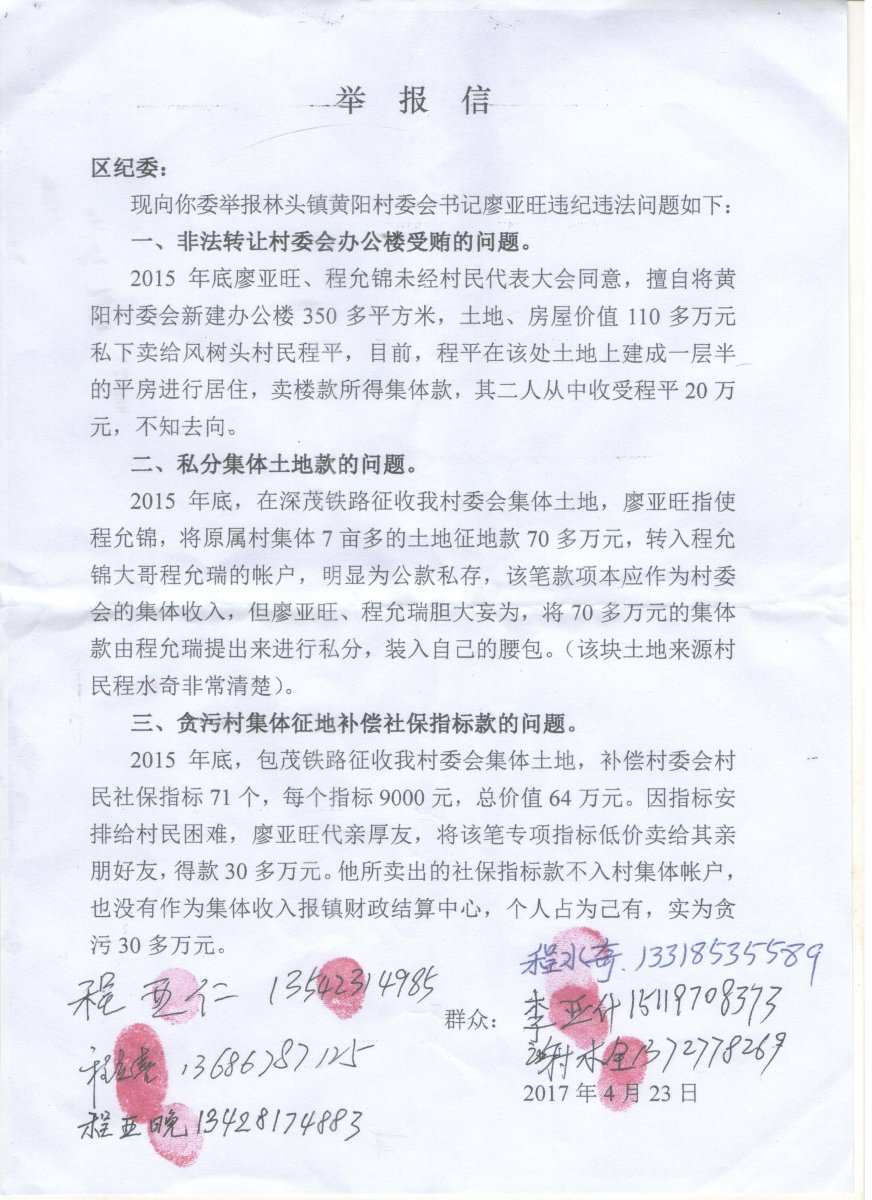 举 报 信
区纪委：
现向你委举报林头镇黄阳村委会书记廖亚旺违纪违法问题如下：
一、非法转让村委会办公楼受贿的问题。
2015 年底廖亚旺、程允锦未经村民代表大会同意，擅自将黄
阳村委会新建办公楼 350 多平方米，土地、房屋价值 110 多万元
私下卖给风树头村民程平，目前，程平在该处土地上建成一层半
的平房进行居住，卖楼款所得集体款，其二人从中收受程平 20 万
元，不知去向。
二、私分集体土地款的问题。
2015 年底，在深茂铁路征收我村委会集体土地，廖亚旺指使
程允锦，将原属村集体 7 亩多的土地征地款 70 多万元，转入程允
锦大哥程允瑞的帐户，明显为公款私存，该笔款项本应作为村委
会的集体收入，但廖亚旺、程允瑞胆大妄为，将 70 多万元的集体
款由程允瑞提出来进行私分，装入自己的腰包。（该块土地来源村
民程水奇非常清楚）。
三、贪污村集体征地补偿社保指标款的问题。
2015 年底，包茂铁路征收我村委会集体土地，补偿村委会村
民社保指标 71 个，每个指标 9000 元，总价值 64 万元。因指标安
排给村民困难，廖亚旺代亲厚友，将该笔专项指标低价卖给其亲
朋好友，得款 30 多万元。他所卖出的社保指标款不入村集体帐户，
也没有作为集体收入报镇财政结算中心，个人占为己有，实为贪
污 30 多万元。
程水奇.13318535589
程亚仁 13542314985
群众：李亚什15119708373
13686787125
水 1372778269
程亚晚13428174883
2017 年 4 月 23 日